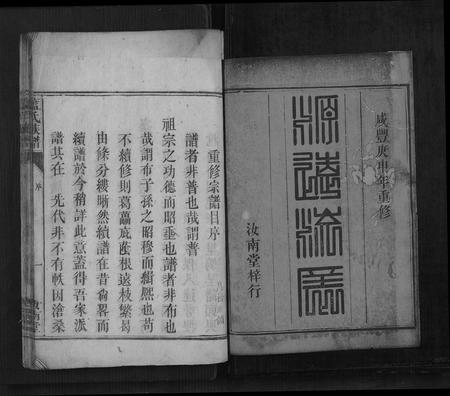 咸豐庚申年重修
源遠流長
汝南堂梓行
重修宗譜目序
譜者非普也哉謂普
祖宗之功德而昭垂也譜者非布也
哉謂布子孫之昭穆而緝熙也苟
不續修則葛藟庇蔭根送枝繁曷
由條分縷晰然續譜在昔畧而
續譜於今稍詳此意蓋得吾家派
譜其在 先代非不有帙因滄桑
藍氏族譜
序
一
汝南堂